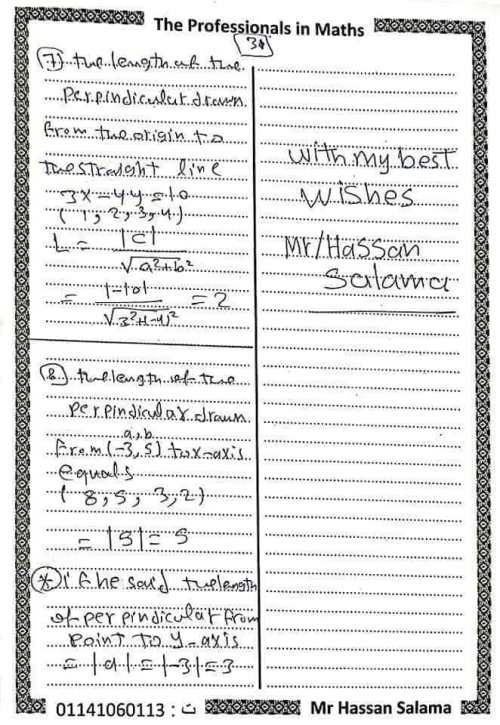 The Professionals in Maths
34
(7) the length of the
perpindicular drawn
from the origin to
the straight line
3x-4y=10
(1,2,3,4)
L = |c| / √a²+b²
= |-10| / √3²+(-4)² = 2
(8) the length of the
perpindicular drawn
a,b
from (-3,5) to x-axis
equals
(8,5,3,2)
= |5| = 5
(*) if he said the length
of perpindicular from
point to y-axis
= |a| = |-3| = 3
with my best
wishes
Mr/Hassan
Salama
01141060113 : ت
Mr Hassan Salama